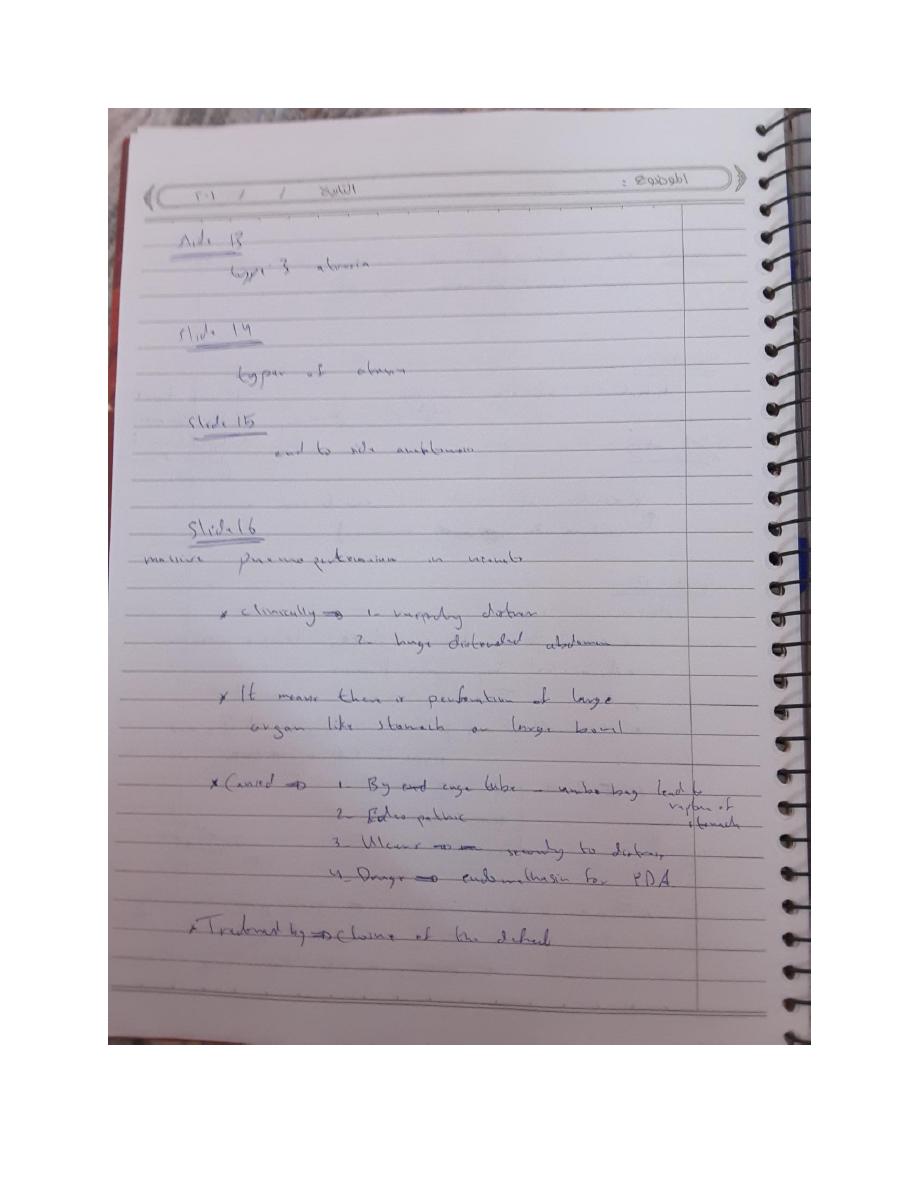 الموضوع :
التاريخ / / ٢٠١
Slide 13
type 3 atresia
Slide 14
types of atresia
Slide 15
end to side anastomosis
Slide 16
massive pneumoperitonium in neonate
* clinically ⇒ 1- respiratory distress
2- huge distended abdomen
* It means there is perforation of large
organ like stomach or large bowel
* Caused ⇒ 1- By tube - ambu bag lead to
rupture of
stomach
2- Idiopathic
3- Ulcer ⇒ secondary to distress
4- Drugs ⇒ endomethasin for PDA
* Treatment by ⇒ closure of the defect